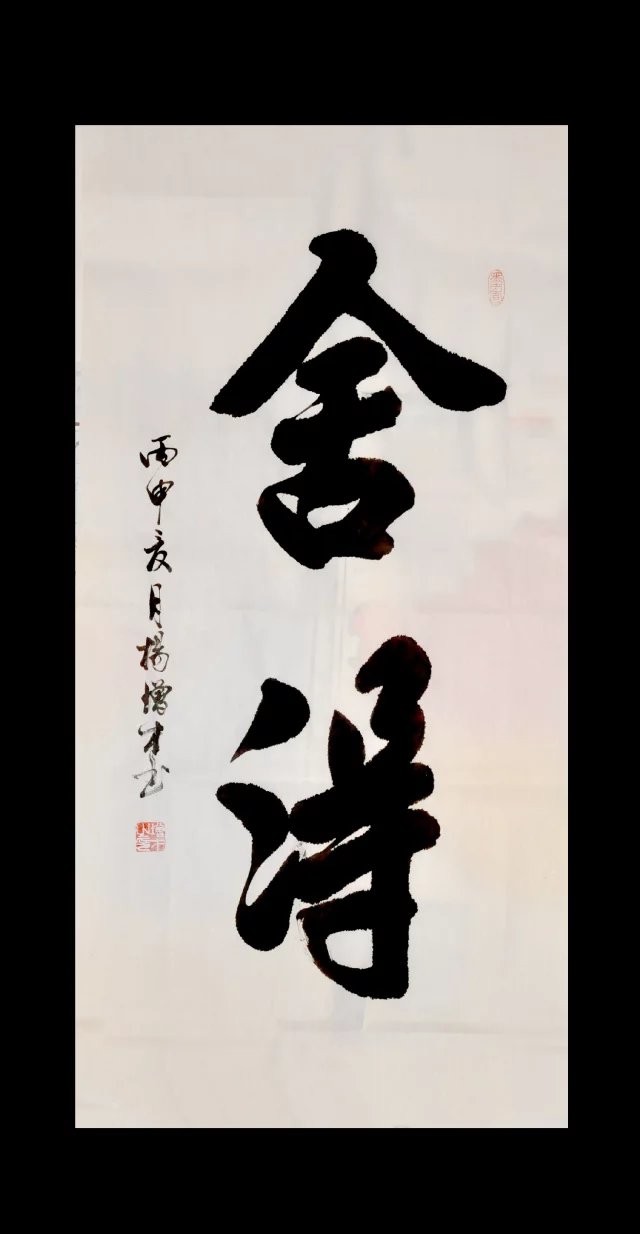 舍得
丙申亥月楊增才书